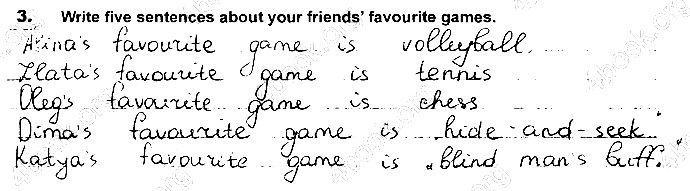 3. Write five sentences about your friends' favourite games.
Arina's favourite game is volleyball.
Zlata's favourite game is tennis
Oleg's favourite game is chess
Dima's favourite game is hide-and-seek.
Katya's favourite game is "blind man's buff."